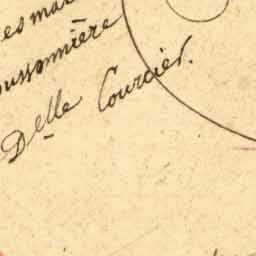 es mar
oussonnière
Delle Courcier.